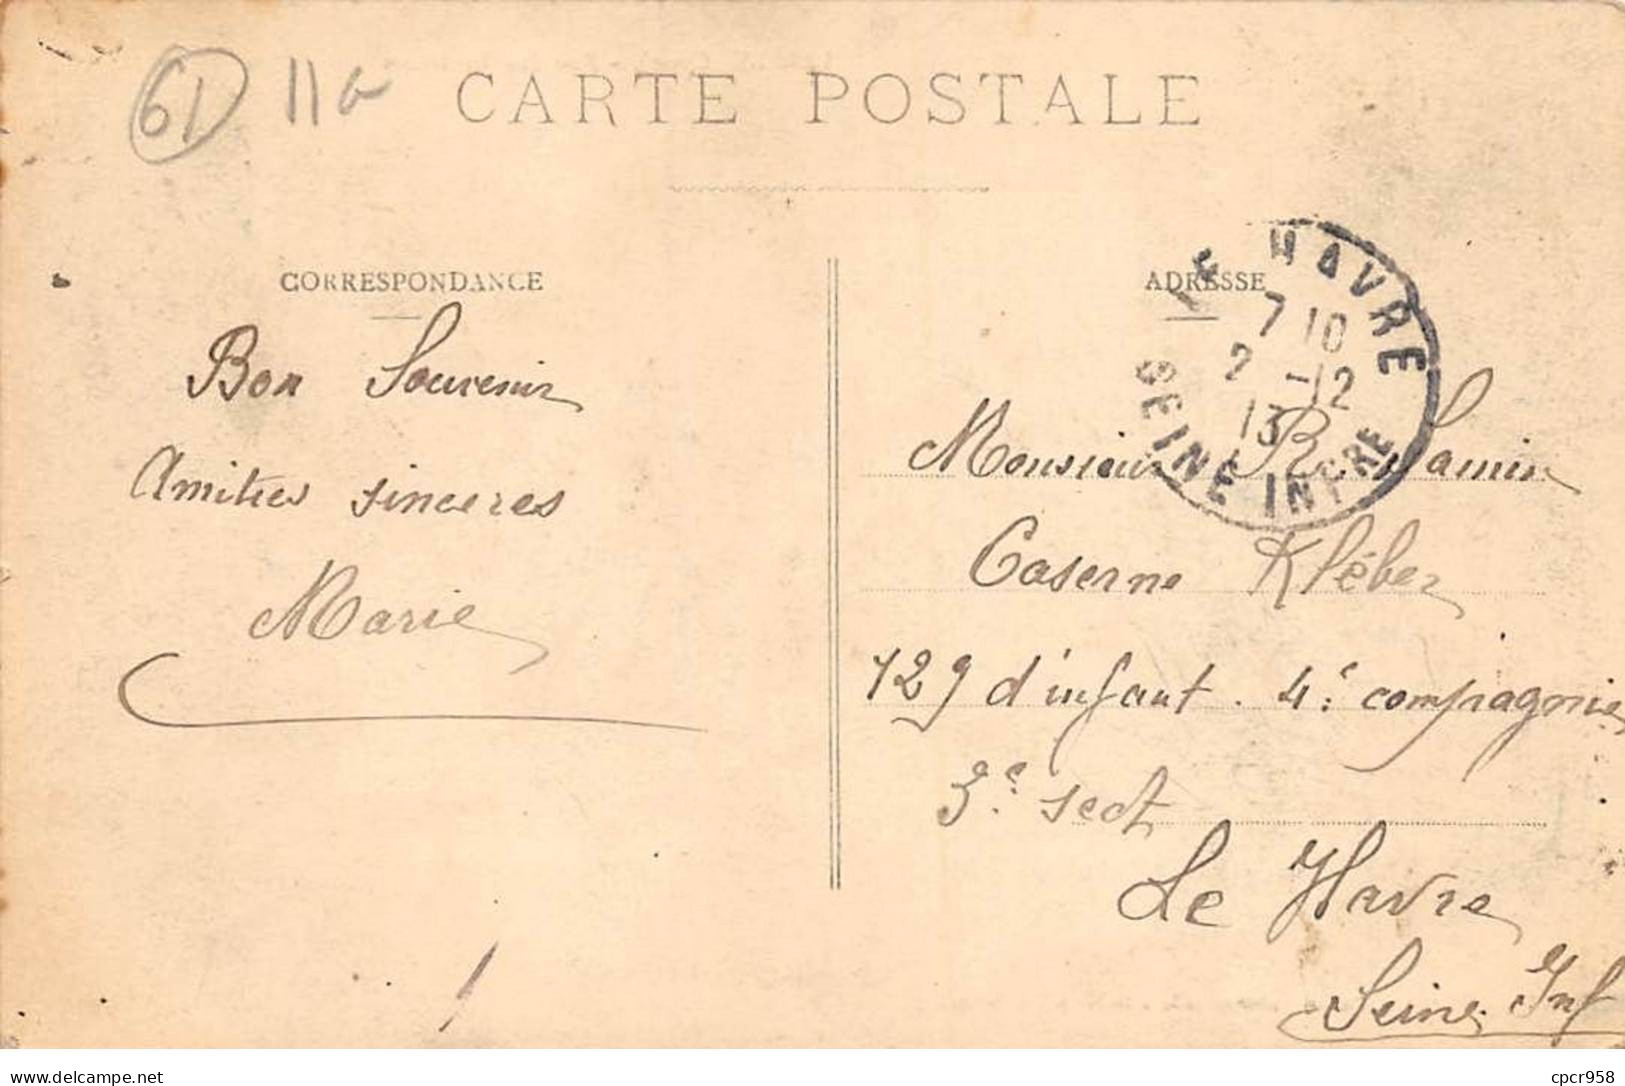 61 11a
CARTE POSTALE
CORRESPONDANCE
Bon Souvenir
Amities sinceres
Marie
ADRESSE
LE HAVRE
7 10
2 -12
13
SEINE INFRE
Monsieur R. Samin
Caserne Kléber
129 d'infant. 4e compagnie
3e sect
Le Havre
Seine Inf
cpcr958